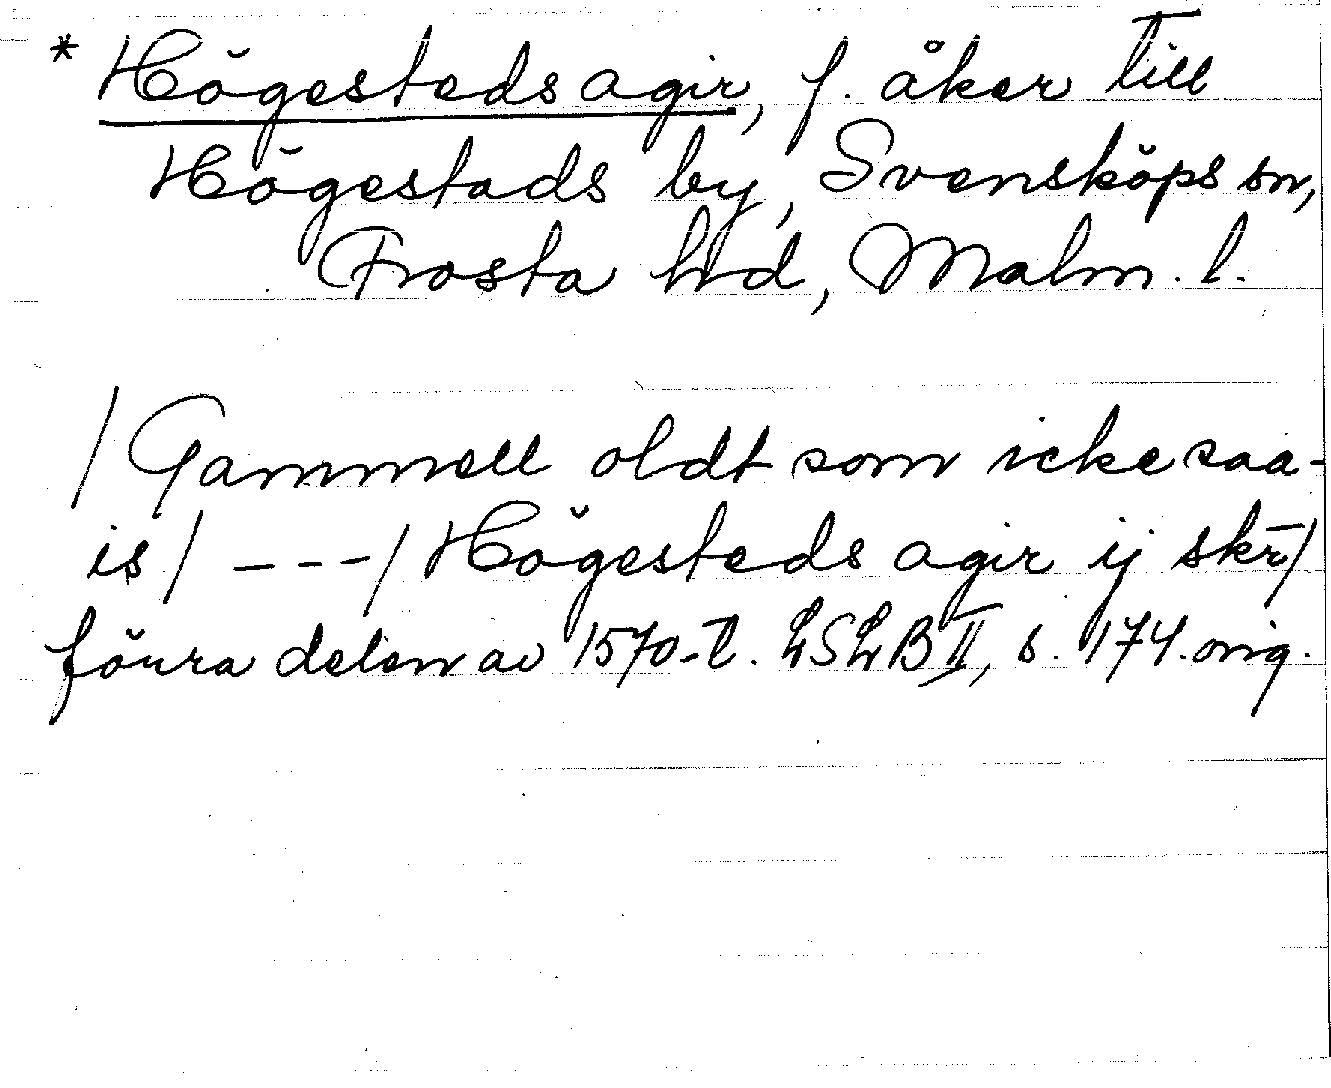 * Högesteds agir, f. åker till
Högestads by, Svensköps sn,
Frosta hd, Malm. l.
/Gammell oldt som icke saa-
is/ ---/Högesteds agir ij skr̄/
förra delen av 1570-t. LSLB II, s. 174. orig.